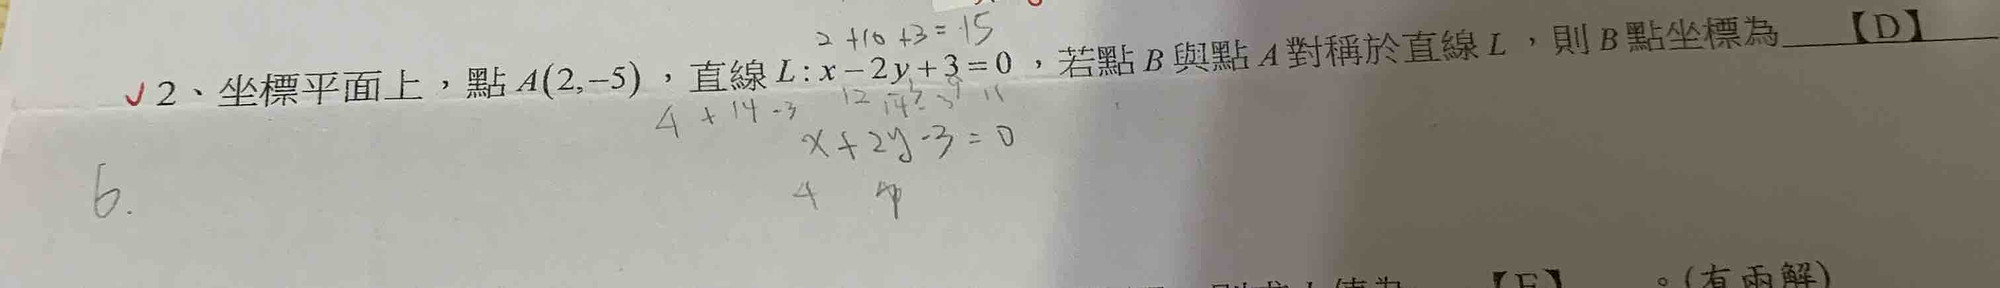 2+10+3=15
2、坐標平面上，點A(2,-5)，直線L:x-2y+3=0，若點B與點A對稱於直線L，則B點坐標為【D】
4+14-3 12
x+2y-3=0
6.
4
【E】。(有兩解)